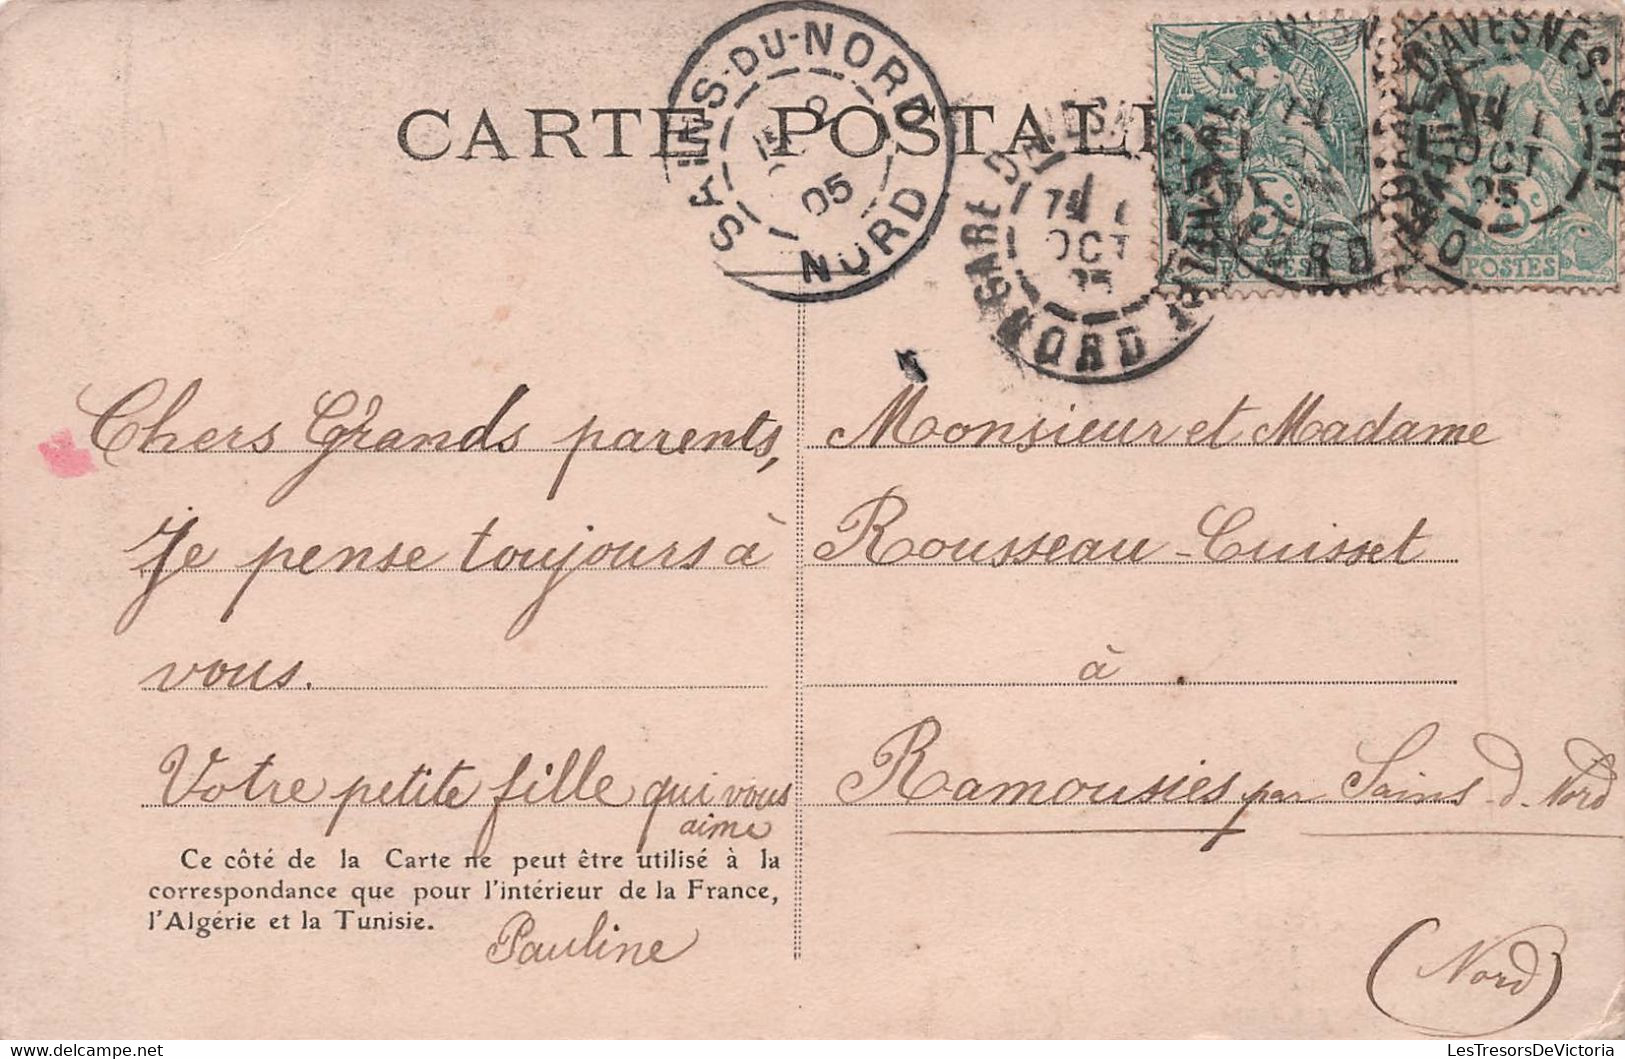 CARTE POSTALE
SAINS-DU-NORD
NORD
2
05
GARE D'AVESNES
7E 1
OCT
05
NORD
POSTES
5
D'AVESNES-S
OCT
POSTES
Chers Grands parents,
Je pense toujours à
vous.
Votre petite fille qui vous
aime
Ce côté de la Carte ne peut être utilisé à la
correspondance que pour l'intérieur de la France,
l'Algérie et la Tunisie.
Pauline
Monsieur et Madame
Rousseau-Cuisset
à
Ramousies par Sains-d-Nord
(Nord)
LesTresorsDeVictoria